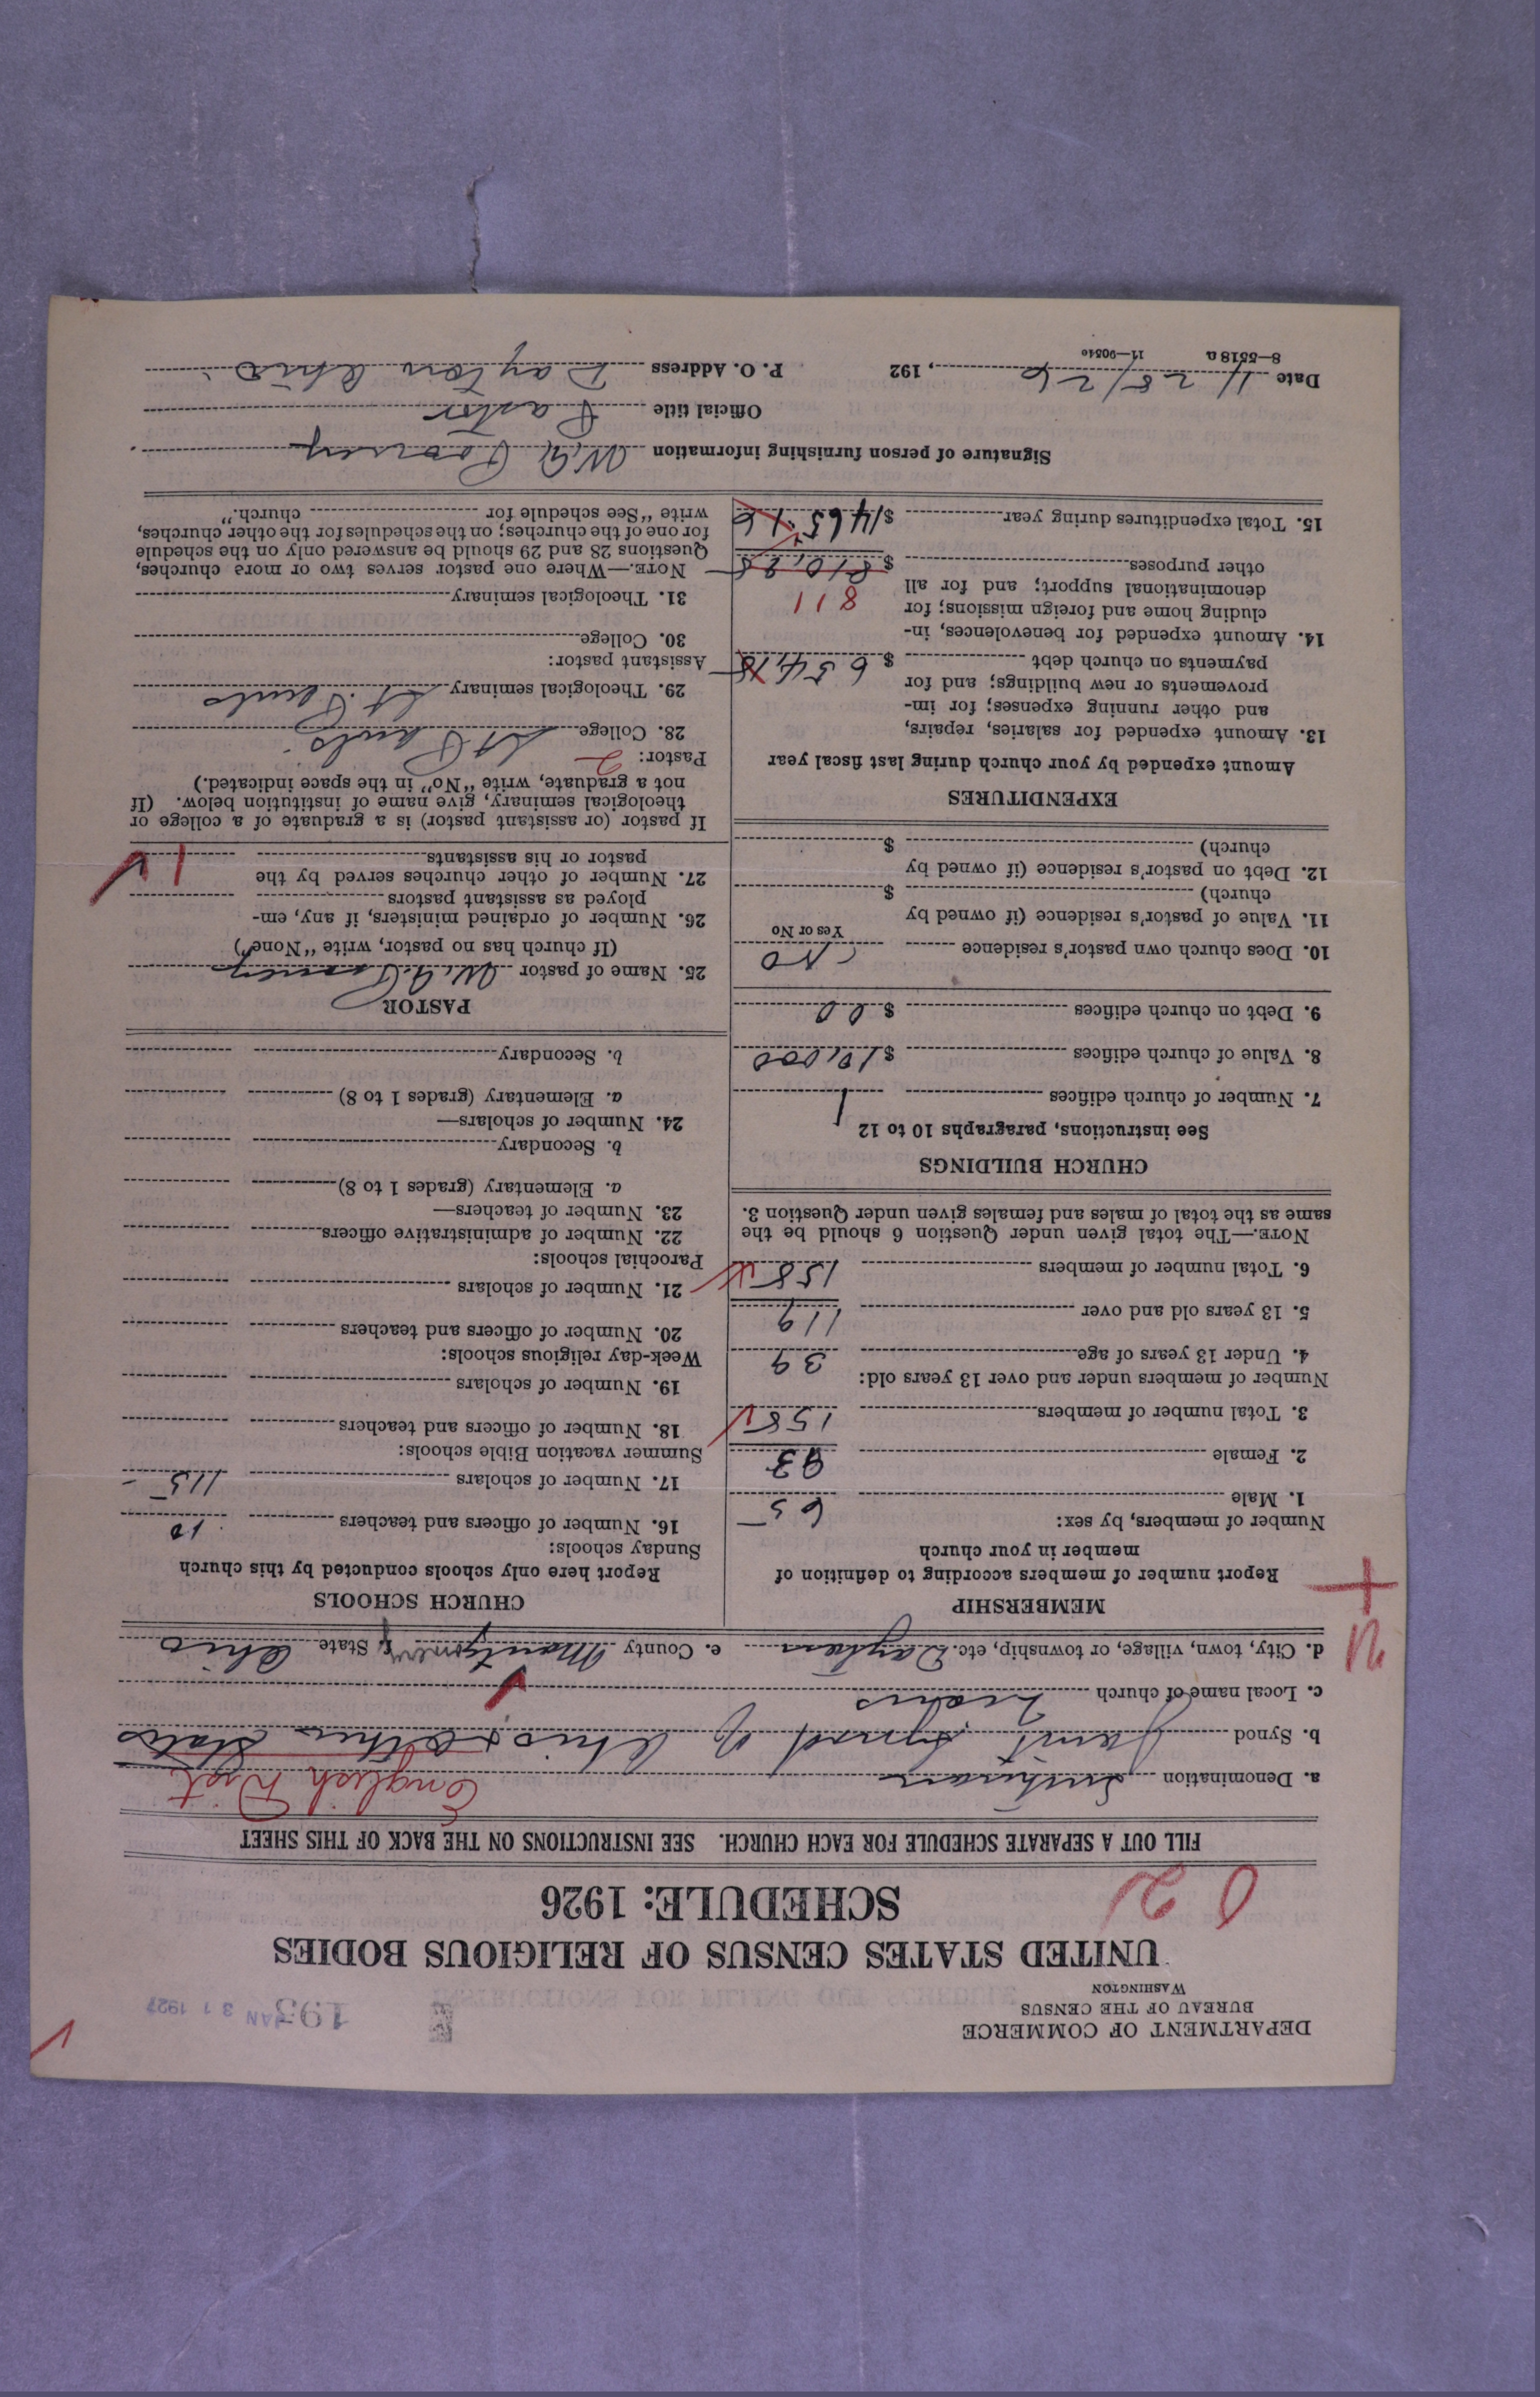 DEPARTMENT OF COMMERCE
BUREAU OF THE CENSUS
WASHINGTON
JAN 31 1927
UNITED STATES CENSUS OF RELIGIOUS BODIES
SCHEDULE: 1926
FILL OUT A SEPARATE SCHEDULE FOR EACH CHURCH. SEE INSTRUCTIONS ON THE BACK OF THIS SHEET
English Dist
a. Denomination Lutheran
b. Synod Joint Synod of Ohio & Other States
c. Local name of church
d. City, town, village, or township, etc. Dayton e. County Montgomery f. State Ohio
MEMBERSHIP
Report number of members according to definition of
member in your church
Number of members, by sex:
1. Male 65
2. Female 93
3. Total number of members 158
Number of members under and over 13 years old:
4. Under 13 years of age 39
5. 13 years old and over 119
6. Total number of members 158
NOTE.—The total given under Question 6 should be the
same as the total of males and females given under Question 3.
CHURCH BUILDINGS
See instructions, paragraphs 10 to 12
7. Number of church edifices 1
8. Value of church edifices $10,000
9. Debt on church edifices $
10. Does church own pastor's residence No
Yes or No
11. Value of pastor's residence (if owned by
church) $
12. Debt on pastor's residence (if owned by
church) $
EXPENDITURES
Amount expended by your church during last fiscal year
13. Amount expended for salaries, repairs,
and other running expenses; for im-
provements or new buildings; and for
payments on church debt $ 654.18
14. Amount expended for benevolences, in-
cluding home and foreign missions; for
denominational support; and for all
811
other purposes $810.98
15. Total expenditures during year $1465.16
CHURCH SCHOOLS
Report here only schools conducted by this church
Sunday schools:
16. Number of officers and teachers 10
17. Number of scholars 115
Summer vacation Bible schools:
18. Number of officers and teachers
19. Number of scholars
Week-day religious schools:
20. Number of officers and teachers
21. Number of scholars
Parochial schools:
22. Number of administrative officers
23. Number of teachers—
a. Elementary (grades 1 to 8)
b. Secondary
24. Number of scholars—
a. Elementary (grades 1 to 8)
b. Secondary
PASTOR
25. Name of pastor W. G.
(If church has no pastor, write "None")
26. Number of ordained ministers, if any, em-
ployed as assistant pastors
27. Number of other churches served by the
pastor or his assistants 1
If pastor (or assistant pastor) is a graduate of a college or
theological seminary, give name of institution below. (If
not a graduate, write "No" in the space indicated.)
Pastor: 2
28. College St Pauls
29. Theological seminary St. Pauls
Assistant pastor:
30. College
31. Theological seminary
NOTE.—Where one pastor serves two or more churches,
Questions 28 and 29 should be answered only on the schedule
for one of the churches; on the schedules for the other churches,
write "See schedule for church."
Signature of person furnishing information W. G.
Official title Pastor
Date 11/25/26, 192 P. O. Address Dayton Ohio
8—5518a 11—9054c